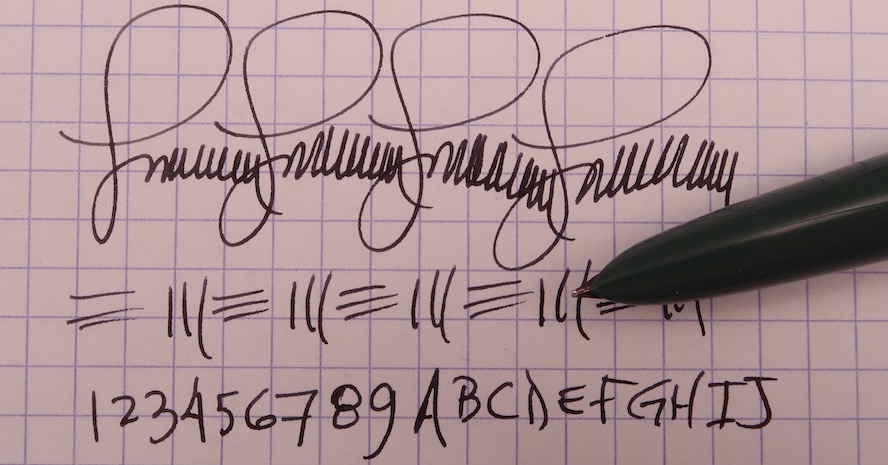 123456789 ABCDEFGHIJ